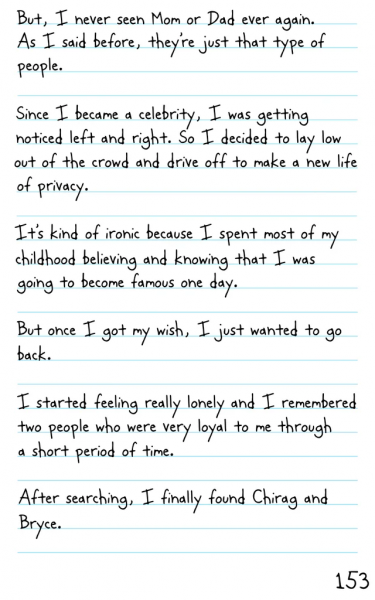 But, I never seen Mom or Dad ever again.
As I said before, they're just that type of
people.
Since I became a celebrity, I was getting
noticed left and right. So I decided to lay low
out of the crowd and drive off to make a new life
of privacy.
It's kind of ironic because I spent most of my
childhood believing and knowing that I was
going to become famous one day.
But once I got my wish, I just wanted to go
back.
I started feeling really lonely and I remembered
two people who were very loyal to me through
a short period of time.
After searching, I finally found Chirag and
Bryce.
153